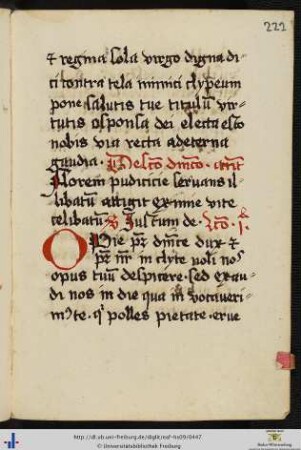 222
⁊ regina sola virgo digna di
ci contra tela inimici clypeum
pone salutis tue titulū vir
tutis o sponsa dei electa esto
nobis via recta ad eterna
gaudia. De scō dm̄co. añt
Florem pudicicie seruans il
libatum attigit eximie vite
celibatum v̄ Iustum de. vco. i.
O Pie pr̄ dm̄ice dux ⁊
pr̄ nr̄ inclyte noli nos
opus tuū despicere. sed exau
di nos in die qua in vocaueri
mꝰ te. qͥ polles pietate. erue
http://dl.ub.uni-freiburg.de/diglit/nsf-4s09/0447
© Universitätsbibliothek Freiburg
Baden-Württemberg